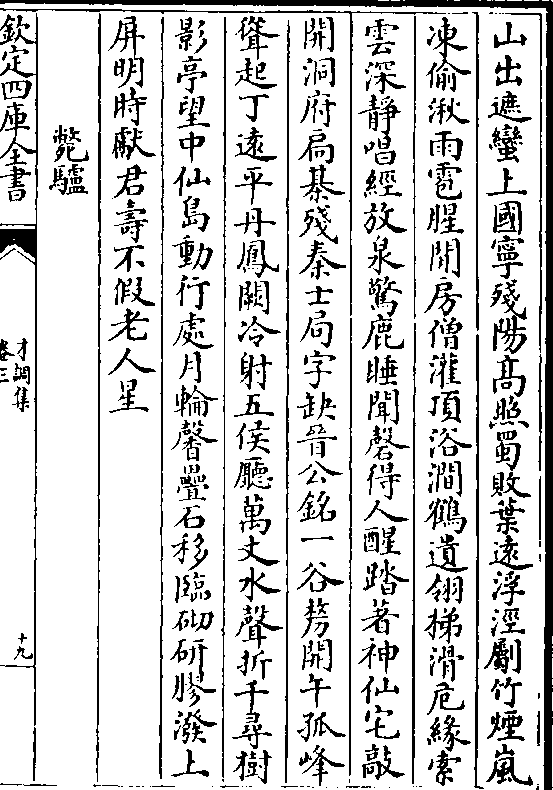 山出遮蠻上國寧殘陽高照蜀敗葉遠浮涇劚竹煙嵐
凍偷湫雨雹腥閑房僧灌頂浴澗鶴遺翎梯滑危緣索
雲深靜唱經放泉驚鹿睡聞磬得人醒踏著神仙宅敲
開洞府扃棊殘秦士局字缺晉公銘一谷勢開午孤峰
聳起丁遠平丹鳳闕冷射五侯廳萬丈水聲折千尋樹
影亭望中仙島動行處月輪馨疊石移臨砌研膠潑上
屏明時獻君壽不假老人星
斃驢
欽定四庫全書
才調集
卷三
十九